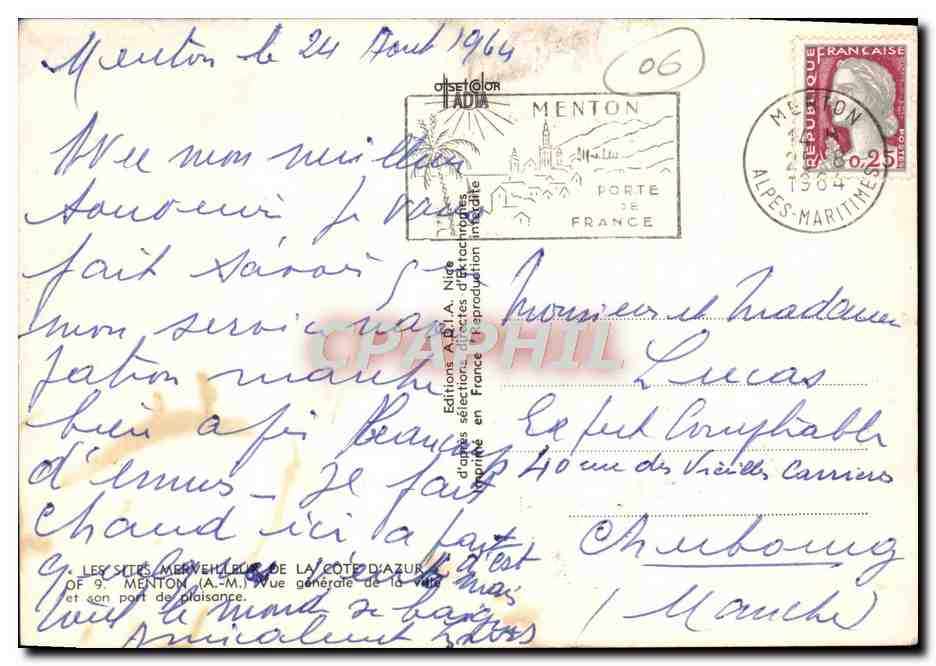 Menton le 24 Aout 1964
Avec mon meilleur
souvenir je vous
fait savoir
mon service
marche
bien
d'ennus - Il fait
chaud ici a part
c'est
mais
tout le monde se baigne
Amicalement
06
OFFSETCOLOR
ADIA
MENTON
PORTE
DE
FRANCE
MENTON
1964
ALPES-MARITIMES
REPUBLIQUE FRANCAISE
POSTES
0,25
Editions A.D.I.A. Nice
d'après sélections directes d'Ektachromes
Imprimé en France Reproduction interdite
CPAPHIL
Monsieur et Madame
Lucas
Expert Comptable
40 rue des Vieilles Carrieres
Cherbourg
(Manche)
LES SITES MERVEILLEUX DE LA CÔTE D'AZUR
OF 9. MENTON (A.-M.) Vue générale de la ville
et son port de plaisance.